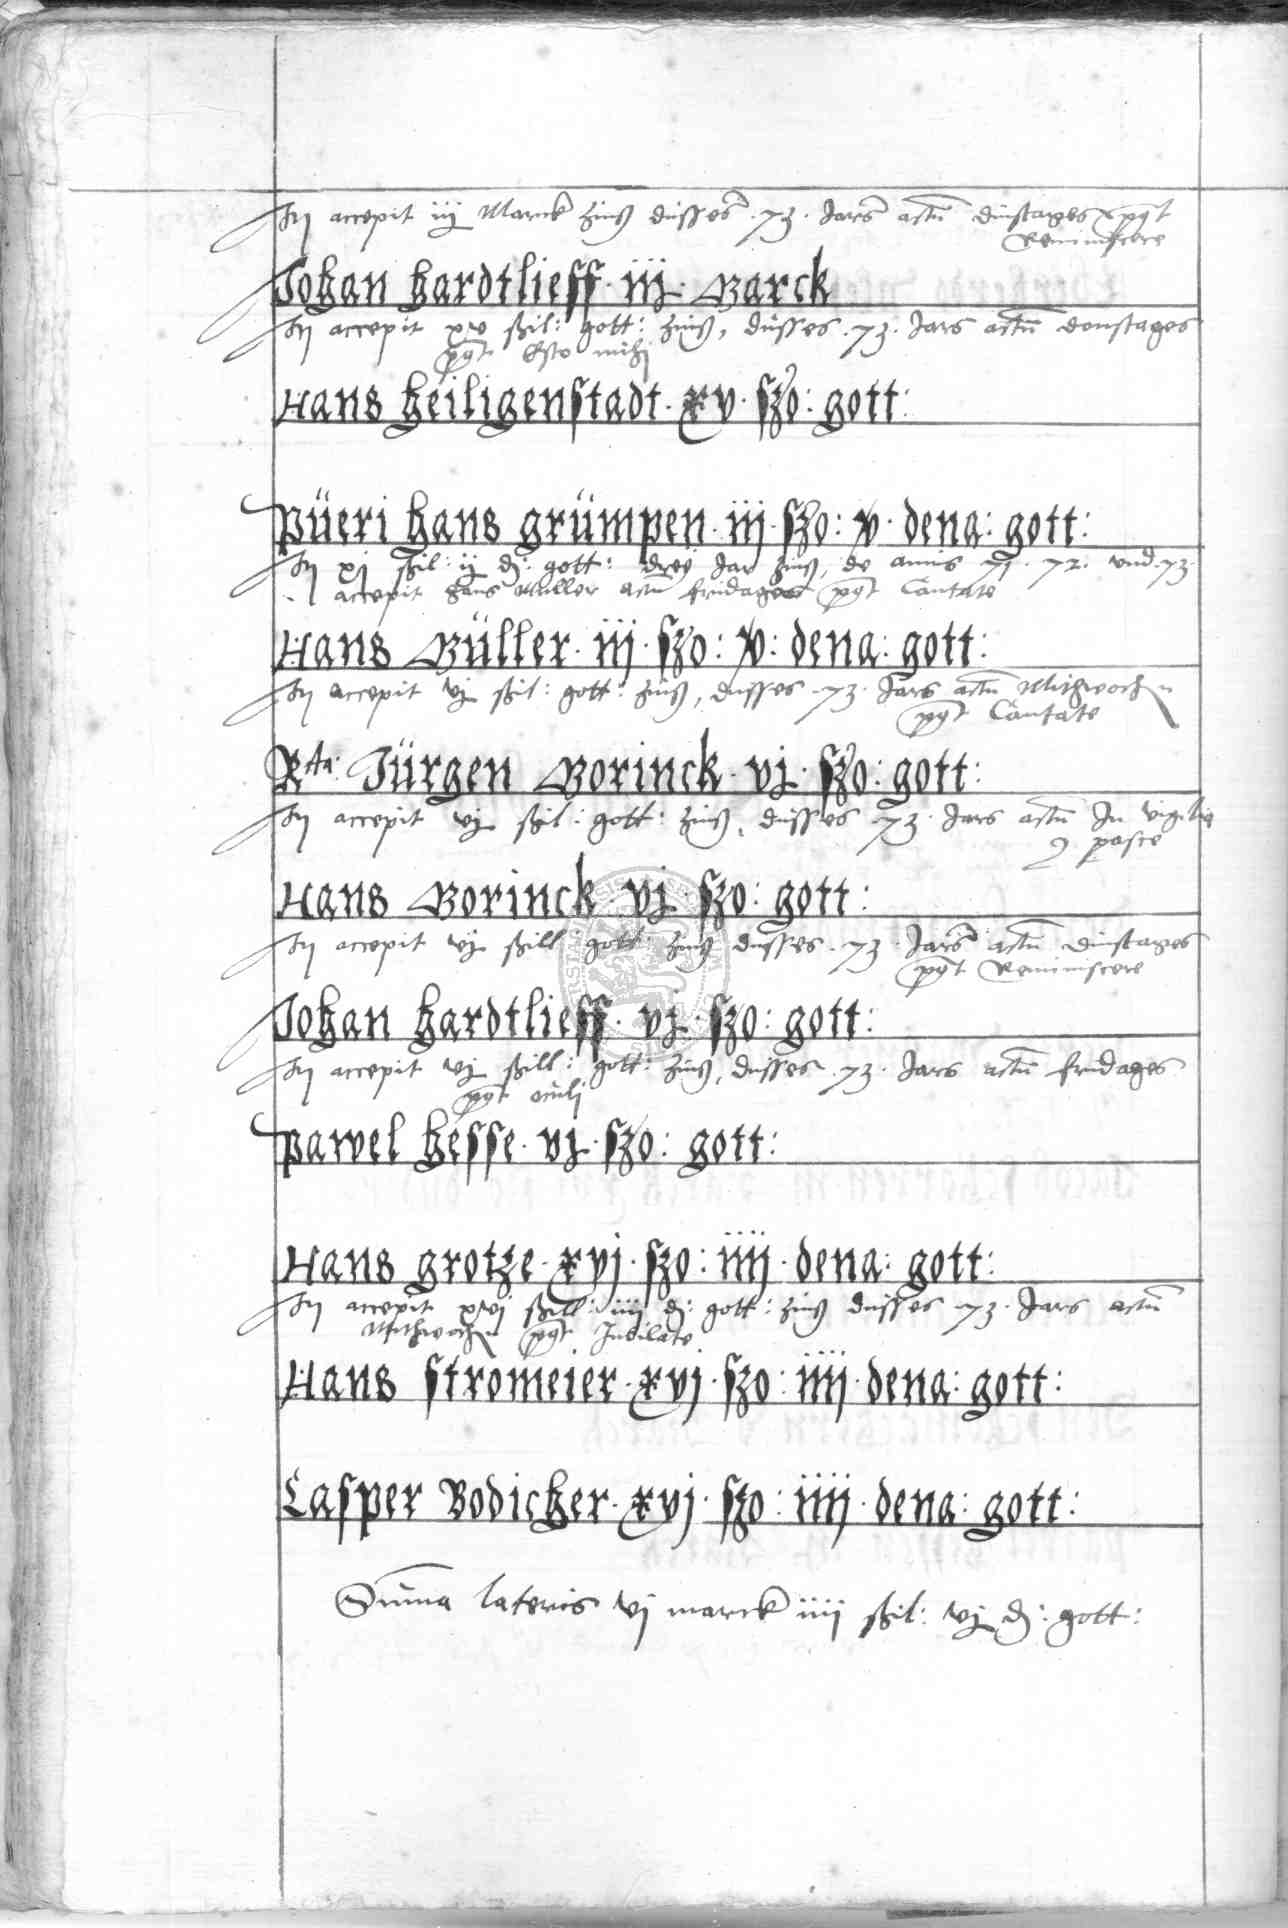 accepit iij Marck zinß dusses 73 Jars actu dinstages post
Reminiscere
Johan Hardtlieff iij Marck
accepit xv ßil: gott: zinß, dusses 73 Jars actu donstages
post Esto mihi
Hans Heiligenstadt xv szo: gott:
Püeri Hans Grümpen iij szo: v dena: gott:
xj ßil: ij d: gott: drey Jar zinß, de annis 71 72 und 73
accepit Hans Muller actu fridages post Cantate
Hans Müller iij szo: v: dena: gott:
accepit vj ßil: gott: zinß, dusses 73 Jars actu Mithwochn
post Cantate
Rta: Jürgen Borinck vj szo: gott:
accepit vj ßil: gott: zinß, dusses 73 Jars actu In vigilia
pasce
Hans Borinck vj szo: gott:
accepit vj ßill: gott: zinß dusses 73 Jars actu dinstages
post Reminiscere
Johan Hardtlieff vj szo: gott:
accepit vj ßill: gott: zinß, dusses 73 Jars actu fridages
post oculi
Pawel Hesse vj szo: gott:
Hans Grotze xvj szo: iiij dena: gott:
accepit xvj ßill: iiij d: gott: zinß dusses 73 Jars actu
Mithwochn post Jubilate
Hans Stromeier xvj szo: iiij dena: gott:
Casper Bodicker xvj szo: iiij dena: gott:
Suma lateris vj marck iiij ßil: vj d: gott: